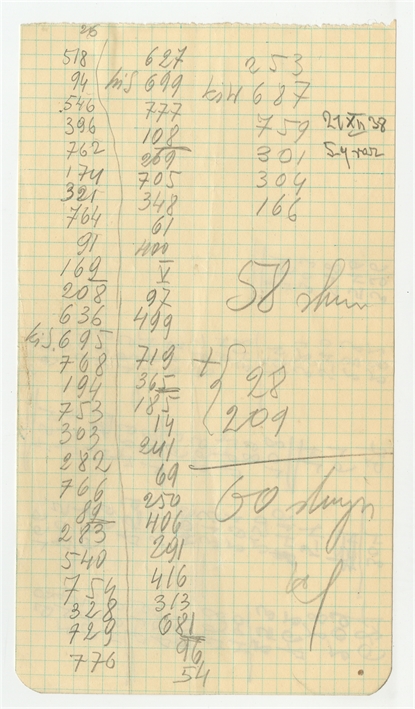 26
518
94
546
396
762
174
321
764
91
169
208
636
kiš. 695
768
194
753
303
282
766
89
283
540
754
328
729
776
627
kiš 699
777
108
269
705
348
61
400
V
97
499
719
365
185
14
241
69
250
406
291
416
313
681
96
54
253
kiš 687
759
301
304
166
21/XII 38
58
+ { 28
209
60